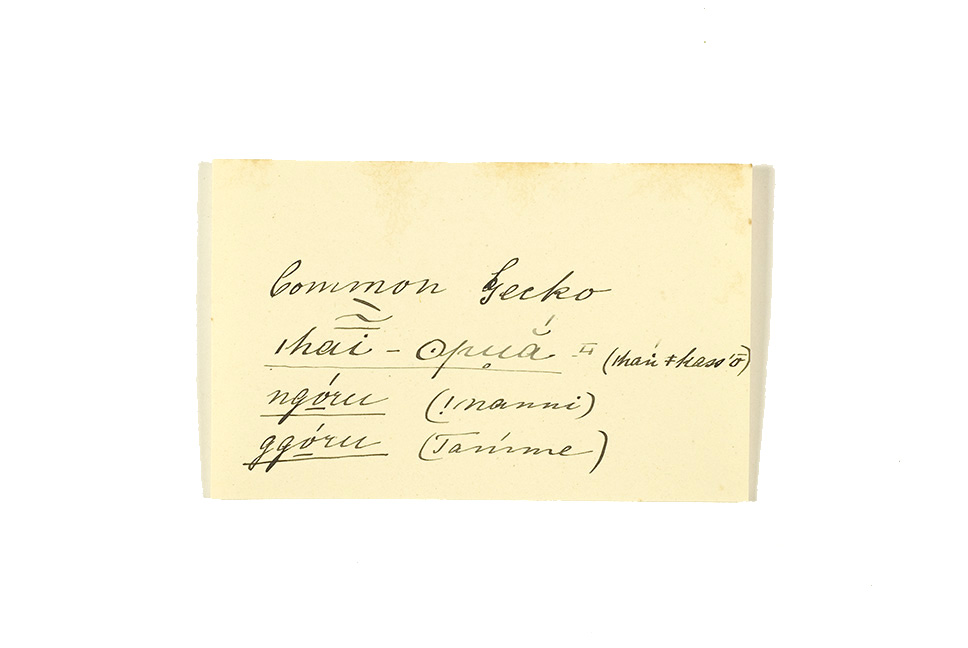 Common Gecko
ǀhai̋ - ʘpŭá̤ (ǀhaṅ ǂkass'ō)
ngó̲ru (!nanni)
ggó̲ru (Tamme)